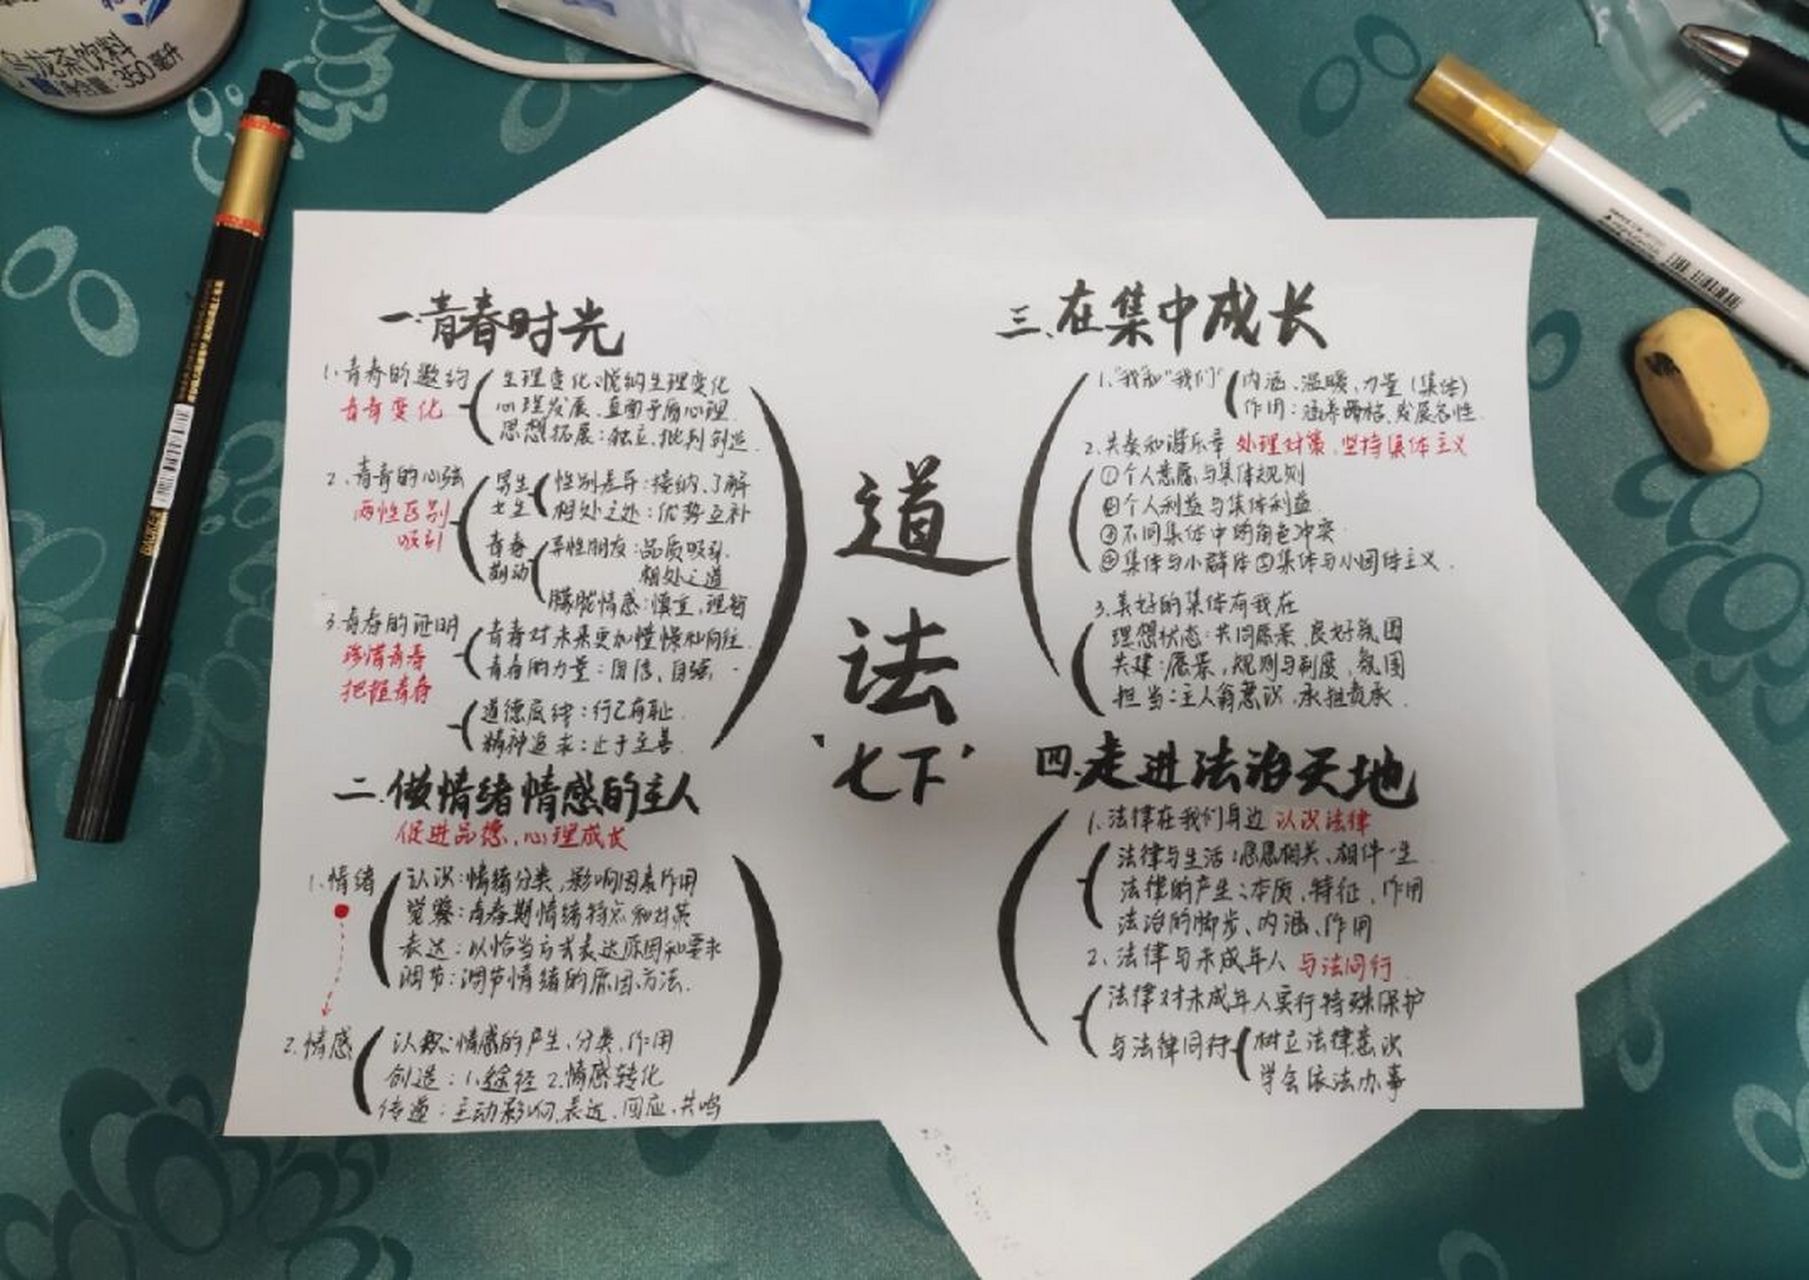 乌龙茶饮料
净含量:350毫升
一.青春时光
1.青春的邀约
青春变化
生理变化:悦纳生理变化
心理发展:直面矛盾心理
思想拓展:独立.批判.创造.
2.青春的心弦
两性区别
吸引
男生
女生
性别差异:接纳.了解
相处之处:优势互补
青春
萌动
异性朋友:品质吸引.
相处之道
朦胧情感:慎重,理智
3.青春的证明
珍惜青春
把握青春
青春对未来更加憧憬和向往.
青春的力量:自信、自强.
道德底线:行己有耻.
精神追求:止于至善.
二.做情绪情感的主人
促进品德,心理成长
1.情绪
认识:情绪分类,影响因素作用
觉察:青春期情绪特点和对策
表达:以恰当方式表达原因和要求
调节:调节情绪的原因.方法.
2.情感
认识:情感的产生.分类.作用
创造:1.途径 2.情感转化
传递:主动影响,表达.回应.共鸣
道
法
'七下'
三.在集中成长
1."我和"我们"
内涵.温暖.力量(集体)
作用:涵养品格.发展个性.
2.共奏和谐乐章 处理对策.坚持集体主义
①个人意愿与集体规则
②个人利益与集体利益
③不同集体中的角色冲突
④集体与小群体⑤集体与小团体主义.
3.美好的集体有我在
理想状态:共同愿景.良好氛围
共建:愿景,规则与制度,氛围
担当:主人翁意识,承担责承.
四.走进法治天地
1.法律在我们身边 认识法律
法律与生活:息息相关、相伴一生
法律的产生:本质,特征,作用
法治的脚步、内涵、作用
2、法律与未成年人 与法同行.
法律对未成年人实行特殊保护
与法律同行
树立法律意识
学会依法办事